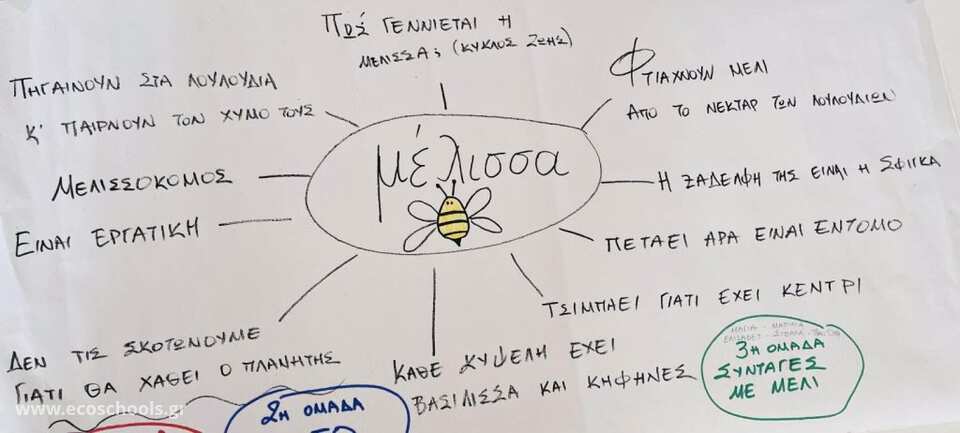 Πως ΓΕΝΝΙΕΤΑΙ Η
ΜΕΛΙΣΣΑ; (ΚΥΚΛΟΣ ΖΩΗΣ)
ΠΗΓΑΙΝΟΥΝ ΣΤΑ ΛΟΥΛΟΥΔΙΑ
Κ' ΠΑΙΡΝΟΥΝ ΤΟΝ ΧΥΜΟ ΤΟΥΣ
ΦΤΙΑΧΝΟΥΝ ΜΕΛΙ
ΑΠΟ ΤΟ ΝΕΚΤΑΡ ΤΩΝ ΛΟΥΛΟΥΔΙΩΝ
μέλισσα
ΜΕΛΙΣΣΟΚΟΜΟΣ
Η ΞΑΔΕΛΦΗ ΤΗΣ ΕΙΝΑΙ Η ΣΦΙΓΚΑ
ΕΙΝΑΙ ΕΡΓΑΤΙΚΗ
ΠΕΤΑΕΙ ΑΡΑ ΕΙΝΑΙ ΕΝΤΟΜΟ
ΤΣΙΜΠΑΕΙ ΓΙΑΤΙ ΕΧΕΙ ΚΕΝΤΡΙ
ΔΕΝ ΤΙΣ ΣΚΟΤΩΝΟΥΜΕ
ΓΙΑΤΙ ΘΑ ΧΑΘΕΙ Ο ΠΛΑΝΗΤΗΣ
ΚΑΘΕ ΚΥΨΕΛΗ ΕΧΕΙ
ΒΑΣΙΛΙΣΣΑ ΚΑΙ ΚΗΦΗΝΕΣ
3η ΟΜΑΔΑ
ΣΥΝΤΑΓΕΣ
ΜΕ ΜΕΛΙ
2η ΟΜΑΔΑ
www.ecoschools.gr